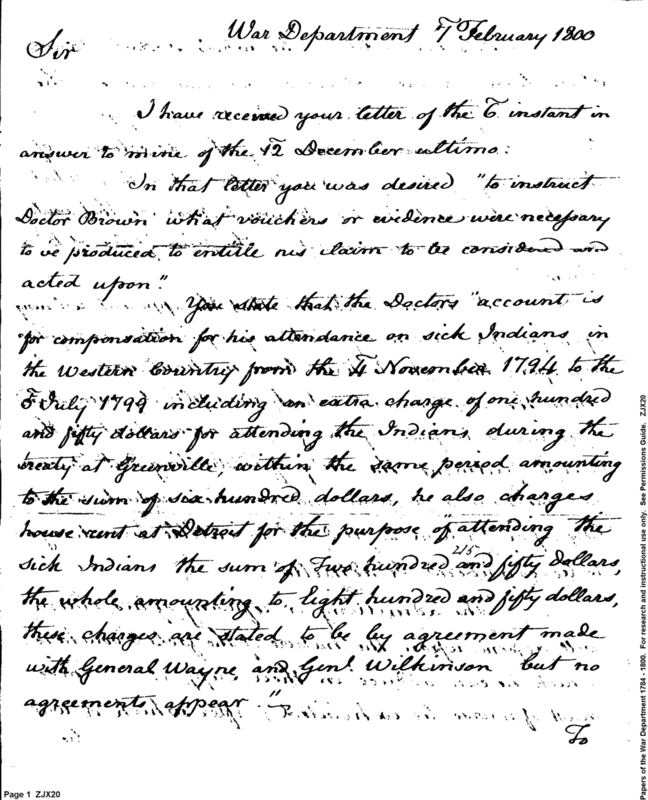 War Department 7 February 1800
Sir
I have received your letter of the 6 instant in
answer to mine of the 12 December ultimo:
In that letter you was desired "to instruct
Doctor Brown what vouchers or evidence were necessary
to be produced to entitle his claim to be considered and
acted upon."
You state that the Doctors "account is
for compensation for his attendance on sick Indians in
the Western Country from the 4 November 1794 to the
July 1799 including an extra charge of one hundred
and fifty dollars for attending the Indians during the
treaty at Greenville, within the same period amounting
to the sum of six hundred dollars, he also charges
house rent at Detroit for the purpose of attending the
sick Indians the sum of Two hundred and fifty dollars,
the whole amounting to Eight hundred and fifty dollars,
these charges are stated to be by agreement made
with General Wayne, and Genl. Wilkinson but no
agreements appear."
To
Page 1 ZJX20
Papers of the War Department 1784 - 1800. For research and instructional use only. See Permissions Guide. ZJX20